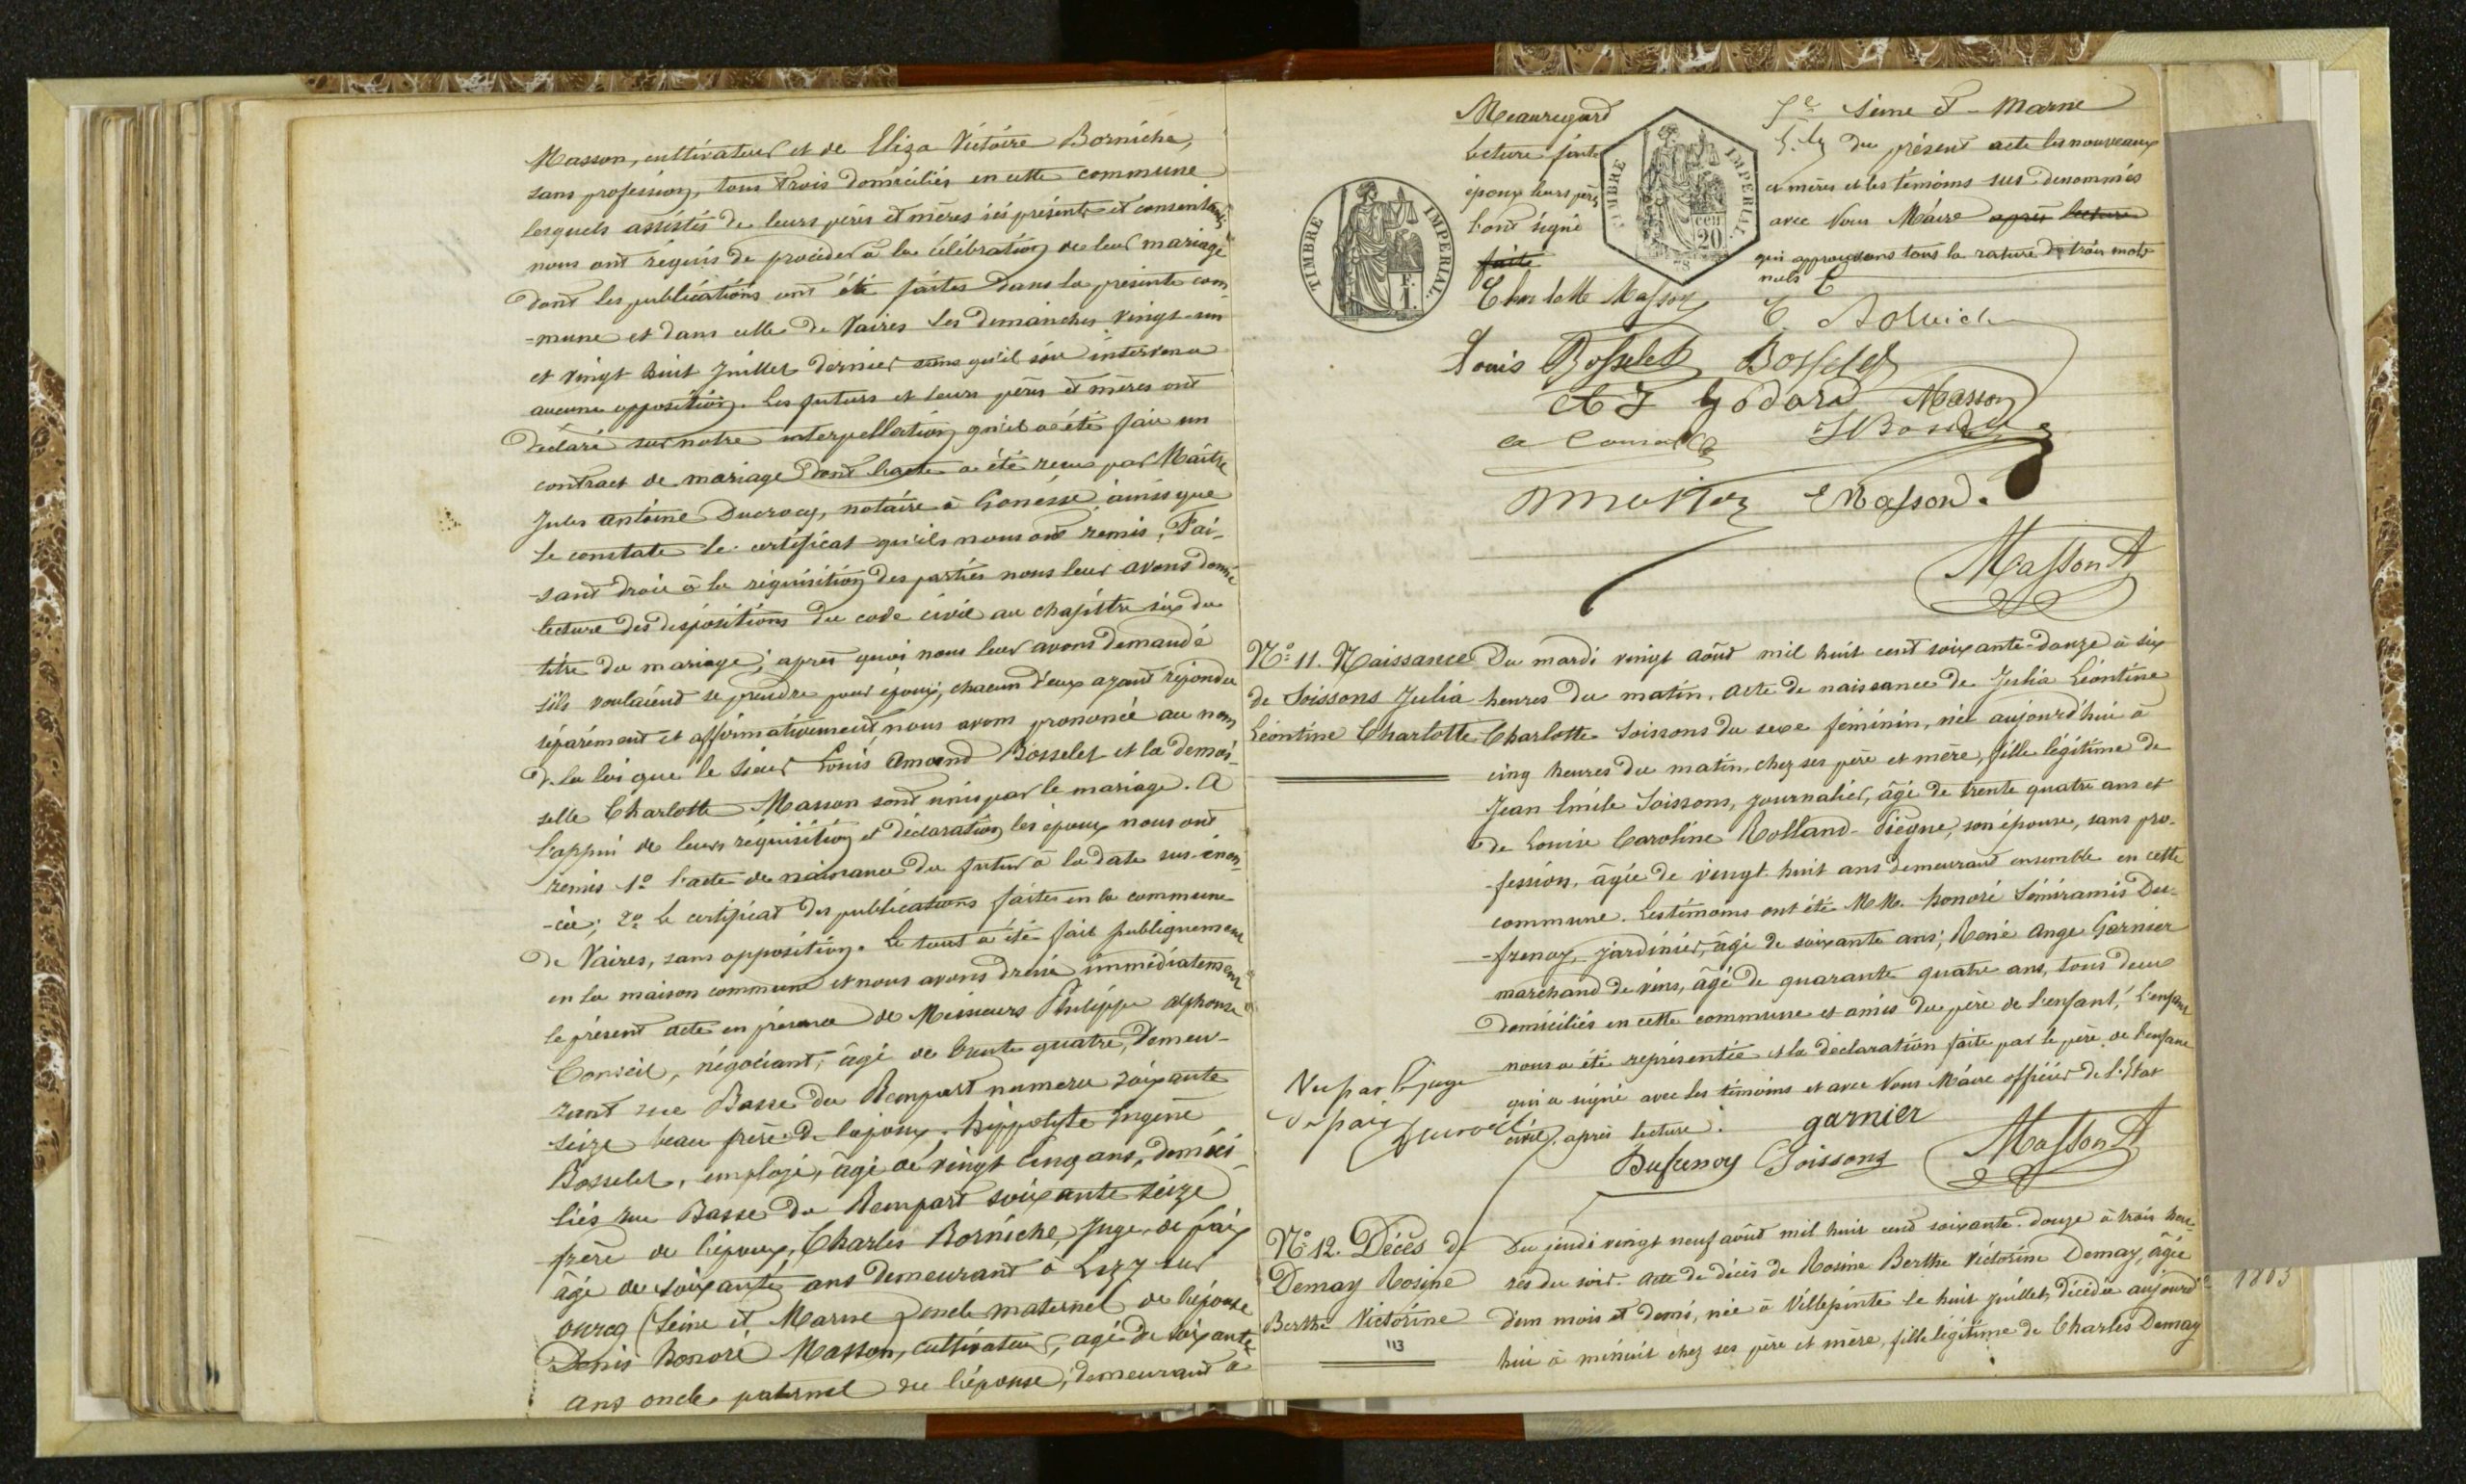 Masson, cultivateur et de Eliza Victoire Borniche,
sans profession, tous trois domiciliés en cette commune
lesquels assistés de leurs pères et mères ici présents et consentants
nous ont réquis de procéder à la célébration de leur mariage
dont les publications ont été faites dans la présente com-
-mune et dans celle de Vaires les dimanches vingt-un
et vingt huit Juillet dernier sans qu'il soit intervenu
aucune opposition. Les futurs et leurs pères et mères ont
déclaré sur notre interpellation qu'il a été fait un
contract de mariage dont l'acte a été reçu par Maître
Jules antoine Ducrocq, notaire à Gonesse ainsi que
le constate le certificat qu'ils nous ont remis, Fai-
-sant droit à la réquisition des parties nous leur avons donné
lecture des dispositions du code civil au chapitre six du
titre du mariage; après quoi nous leur avons demandé
s'ils voulaient se prendre pour époux; chacun d'eux ayant répondu
séparément et affirmativement nous avons prononcé au nom
de la loi que le Sieur Louis Amand Bosselet et la demoi-
selle Charlotte Masson sont unis par le mariage. A
l'appui de leurs réquisition et déclaration les époux nous ont
remis 1º l'acte de naissance du futur à la date sus-énon-
-cée; 2º le certificat des publications faites en la commune
de Vaires, sans opposition. Le tout a été fait publiquement
en la maison commune et nous avons dressé immédiatement
le présent acte en présence de Messieurs Philippe alphonse
Conseil, négociant, âgé de trente quatre, demeu-
rant rue Basse du Rempart numéro soixante
seize beau frère de l'époux. hippolyte Eugène
Bosselet, employé, âgé de vingt cinq ans, domici-
liés rue Basse du Rempart soixante seize
frère de l'époux, Charles Borniche, Juge de paix
âgé de soixante ans demeurant à Lizy sur
ourcq (Seine et Marne) oncle maternel de l'épouse
Denis honoré Masson, cultivateur, âgé de soixante
ans oncle paternel de l'épouse, demeurant à
Meauregard
Seine et - Marne
Lecture faite
du présent acte les nouveaux
époux leurs pères
et mères et les témoins sus denommés
l'ont signé
avec Nous Maire après lecture
faite
qui approuvons tous la rature de trois mots
nuls
TIMBRE IMPERIAL
1 F.
TIMBRE IMPERIAL
cen 20
Charlotte Masson
Louis Bosselet Bosselet
Godard Masson
E Masson
Masson A
Nº 11. Naissance
de Soissons Julia
Léontine Charlotte
Du mardi vingt août mil huit cent soixante-douze à six
heures du matin. acte de naissance de Julia Léontine
Charlotte Soissons du sexe féminin, née aujourd'hui à
cinq heures du matin, chez ses père et mère, fille légitime de
Jean Emile Soissons, journalier, âgé de trente quatre ans et
de Louise Caroline Rolland-Diègne, son épouse, sans pro-
-fession, âgée de vingt huit ans demeurant ensemble en cette
commune. Les témoins ont été MM. honoré Sémiramis Du-
-frenoy, jardinier, âgé de soixante ans; René Ange Garnier
marchand de vins, âgé de quarante quatre ans, tous deux
domiciliés en cette commune et amis du père de l'enfant; l'enfant
nous a été représentée et la déclaration faite par le père de l'enfant
qui a signé avec les témoins et avec Nous Maire officier de l'Etat
civil, après lecture.
Vu par le juge
de paix
garnier
Dufrenoy Soissons Masson A
Nº 12. Décès de
Demay Rosine
Berthe Victorine
113
Du jeudi vingt neuf août mil huit cent soixante-douze à trois heu-
res du soir. acte de décès de Rosine Berthe Victorine Demay, âgée
d'un mois et demi, née à Villepinte le huit juillet, décédée aujourd'
hui à minuit chez ses père et mère, fille légitime de Charles Demay